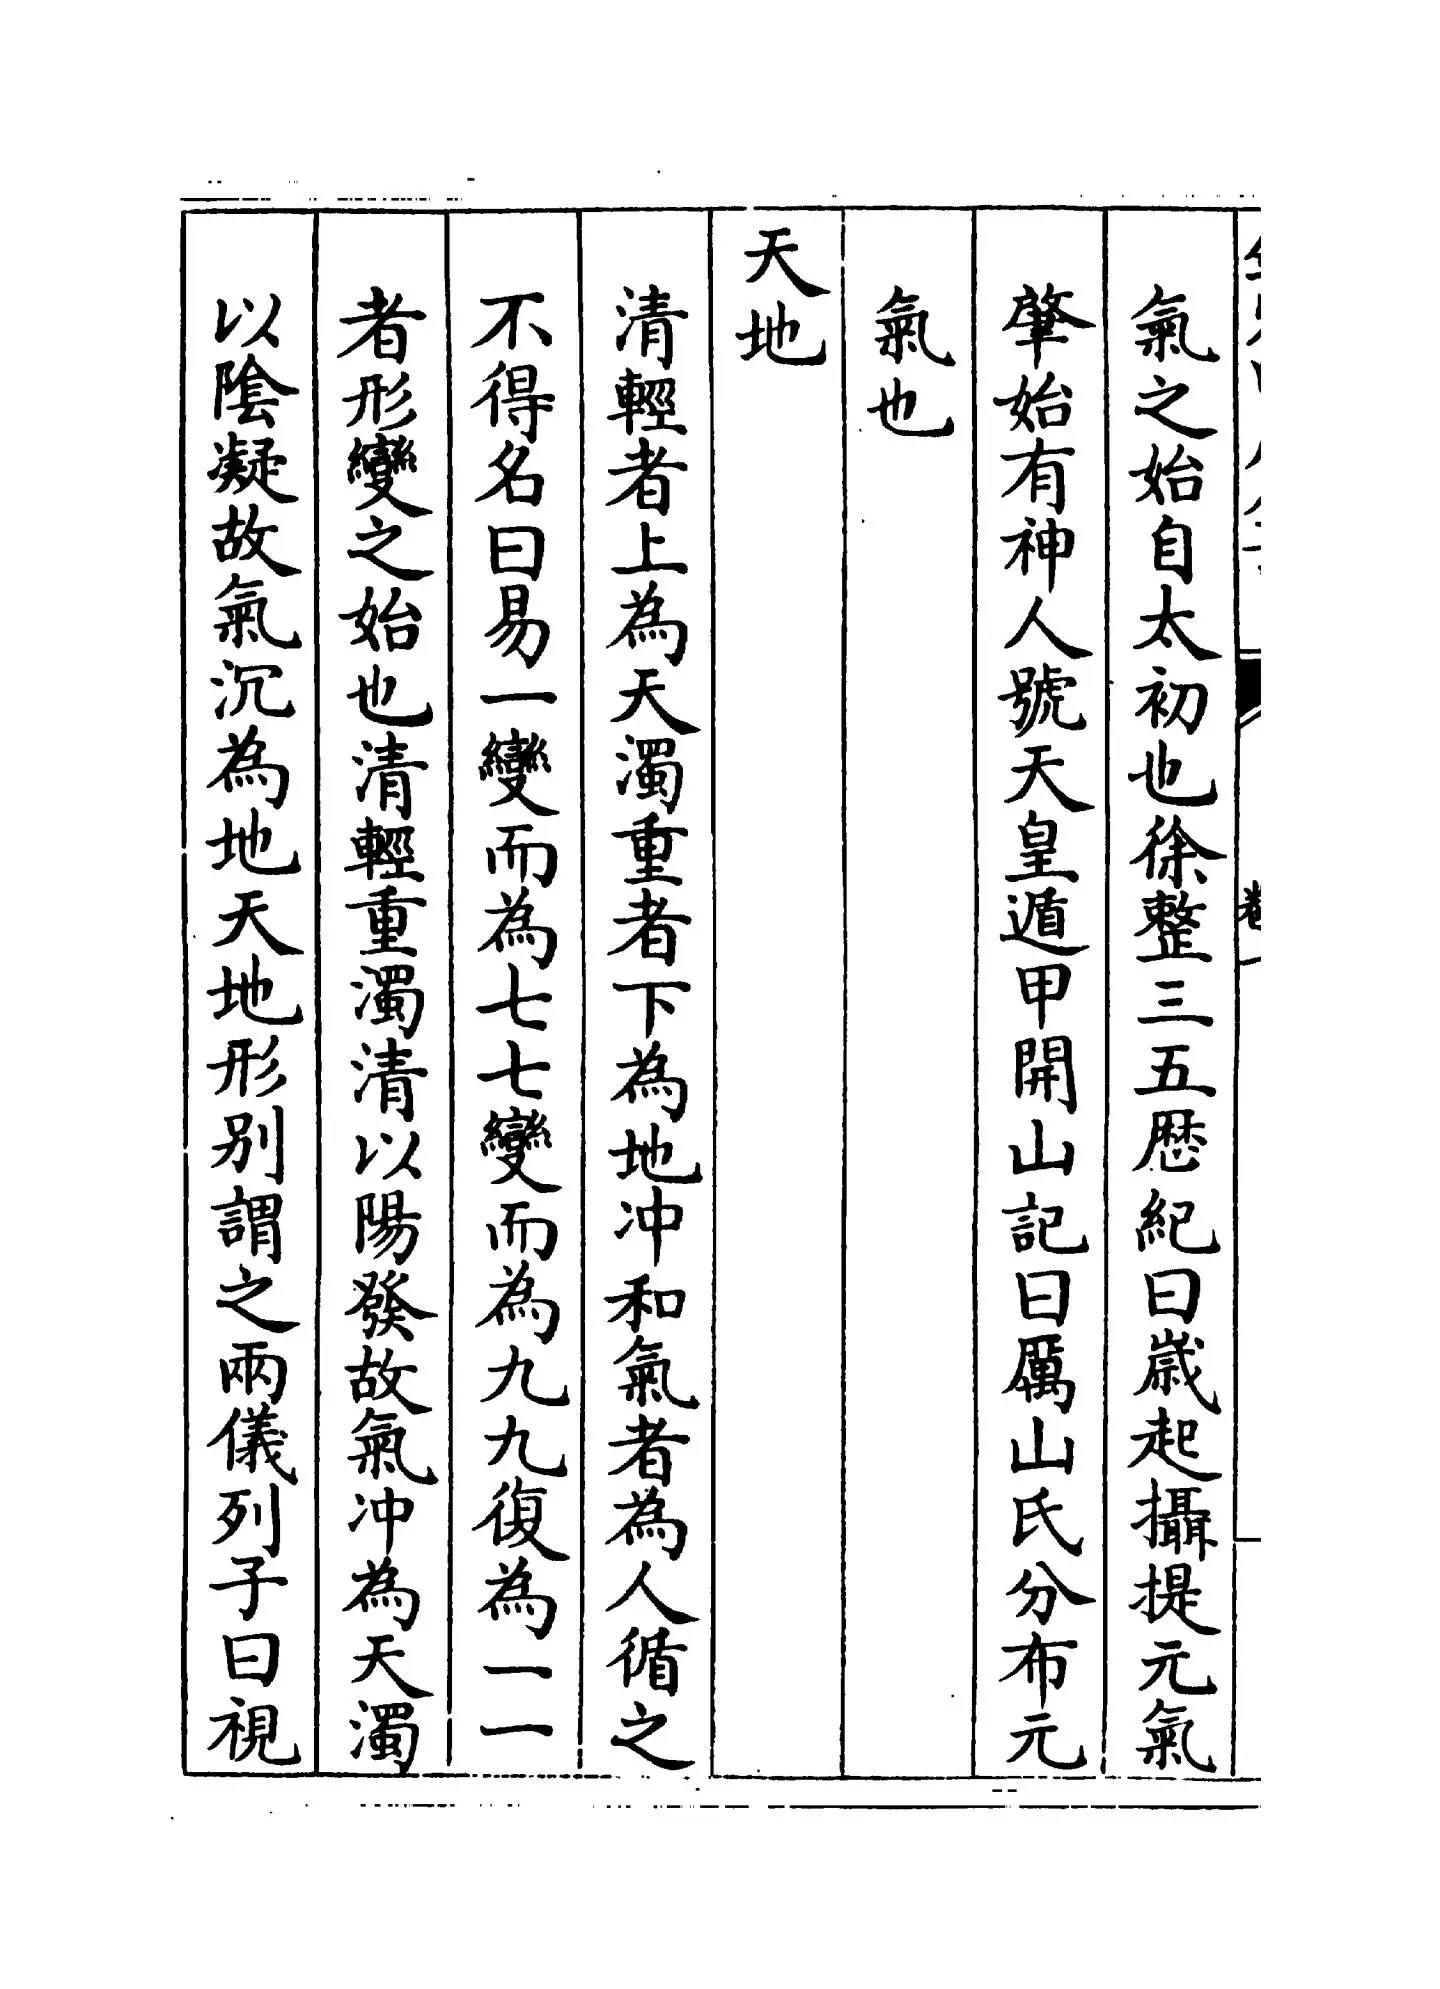 氣之始自太初也徐整三五厯紀曰歳起攝提元氣
肇始有神人號天皇遁甲開山記曰厲山氏分布元
氣也
天地
清輕者上為天濁重者下為地冲和氣者為人循之
不得名曰易一變而為七七變而為九九復為一一
者形變之始也清輕重濁清以陽發故氣冲為天濁
以隂凝故氣沉為地天地形别謂之兩儀列子曰視